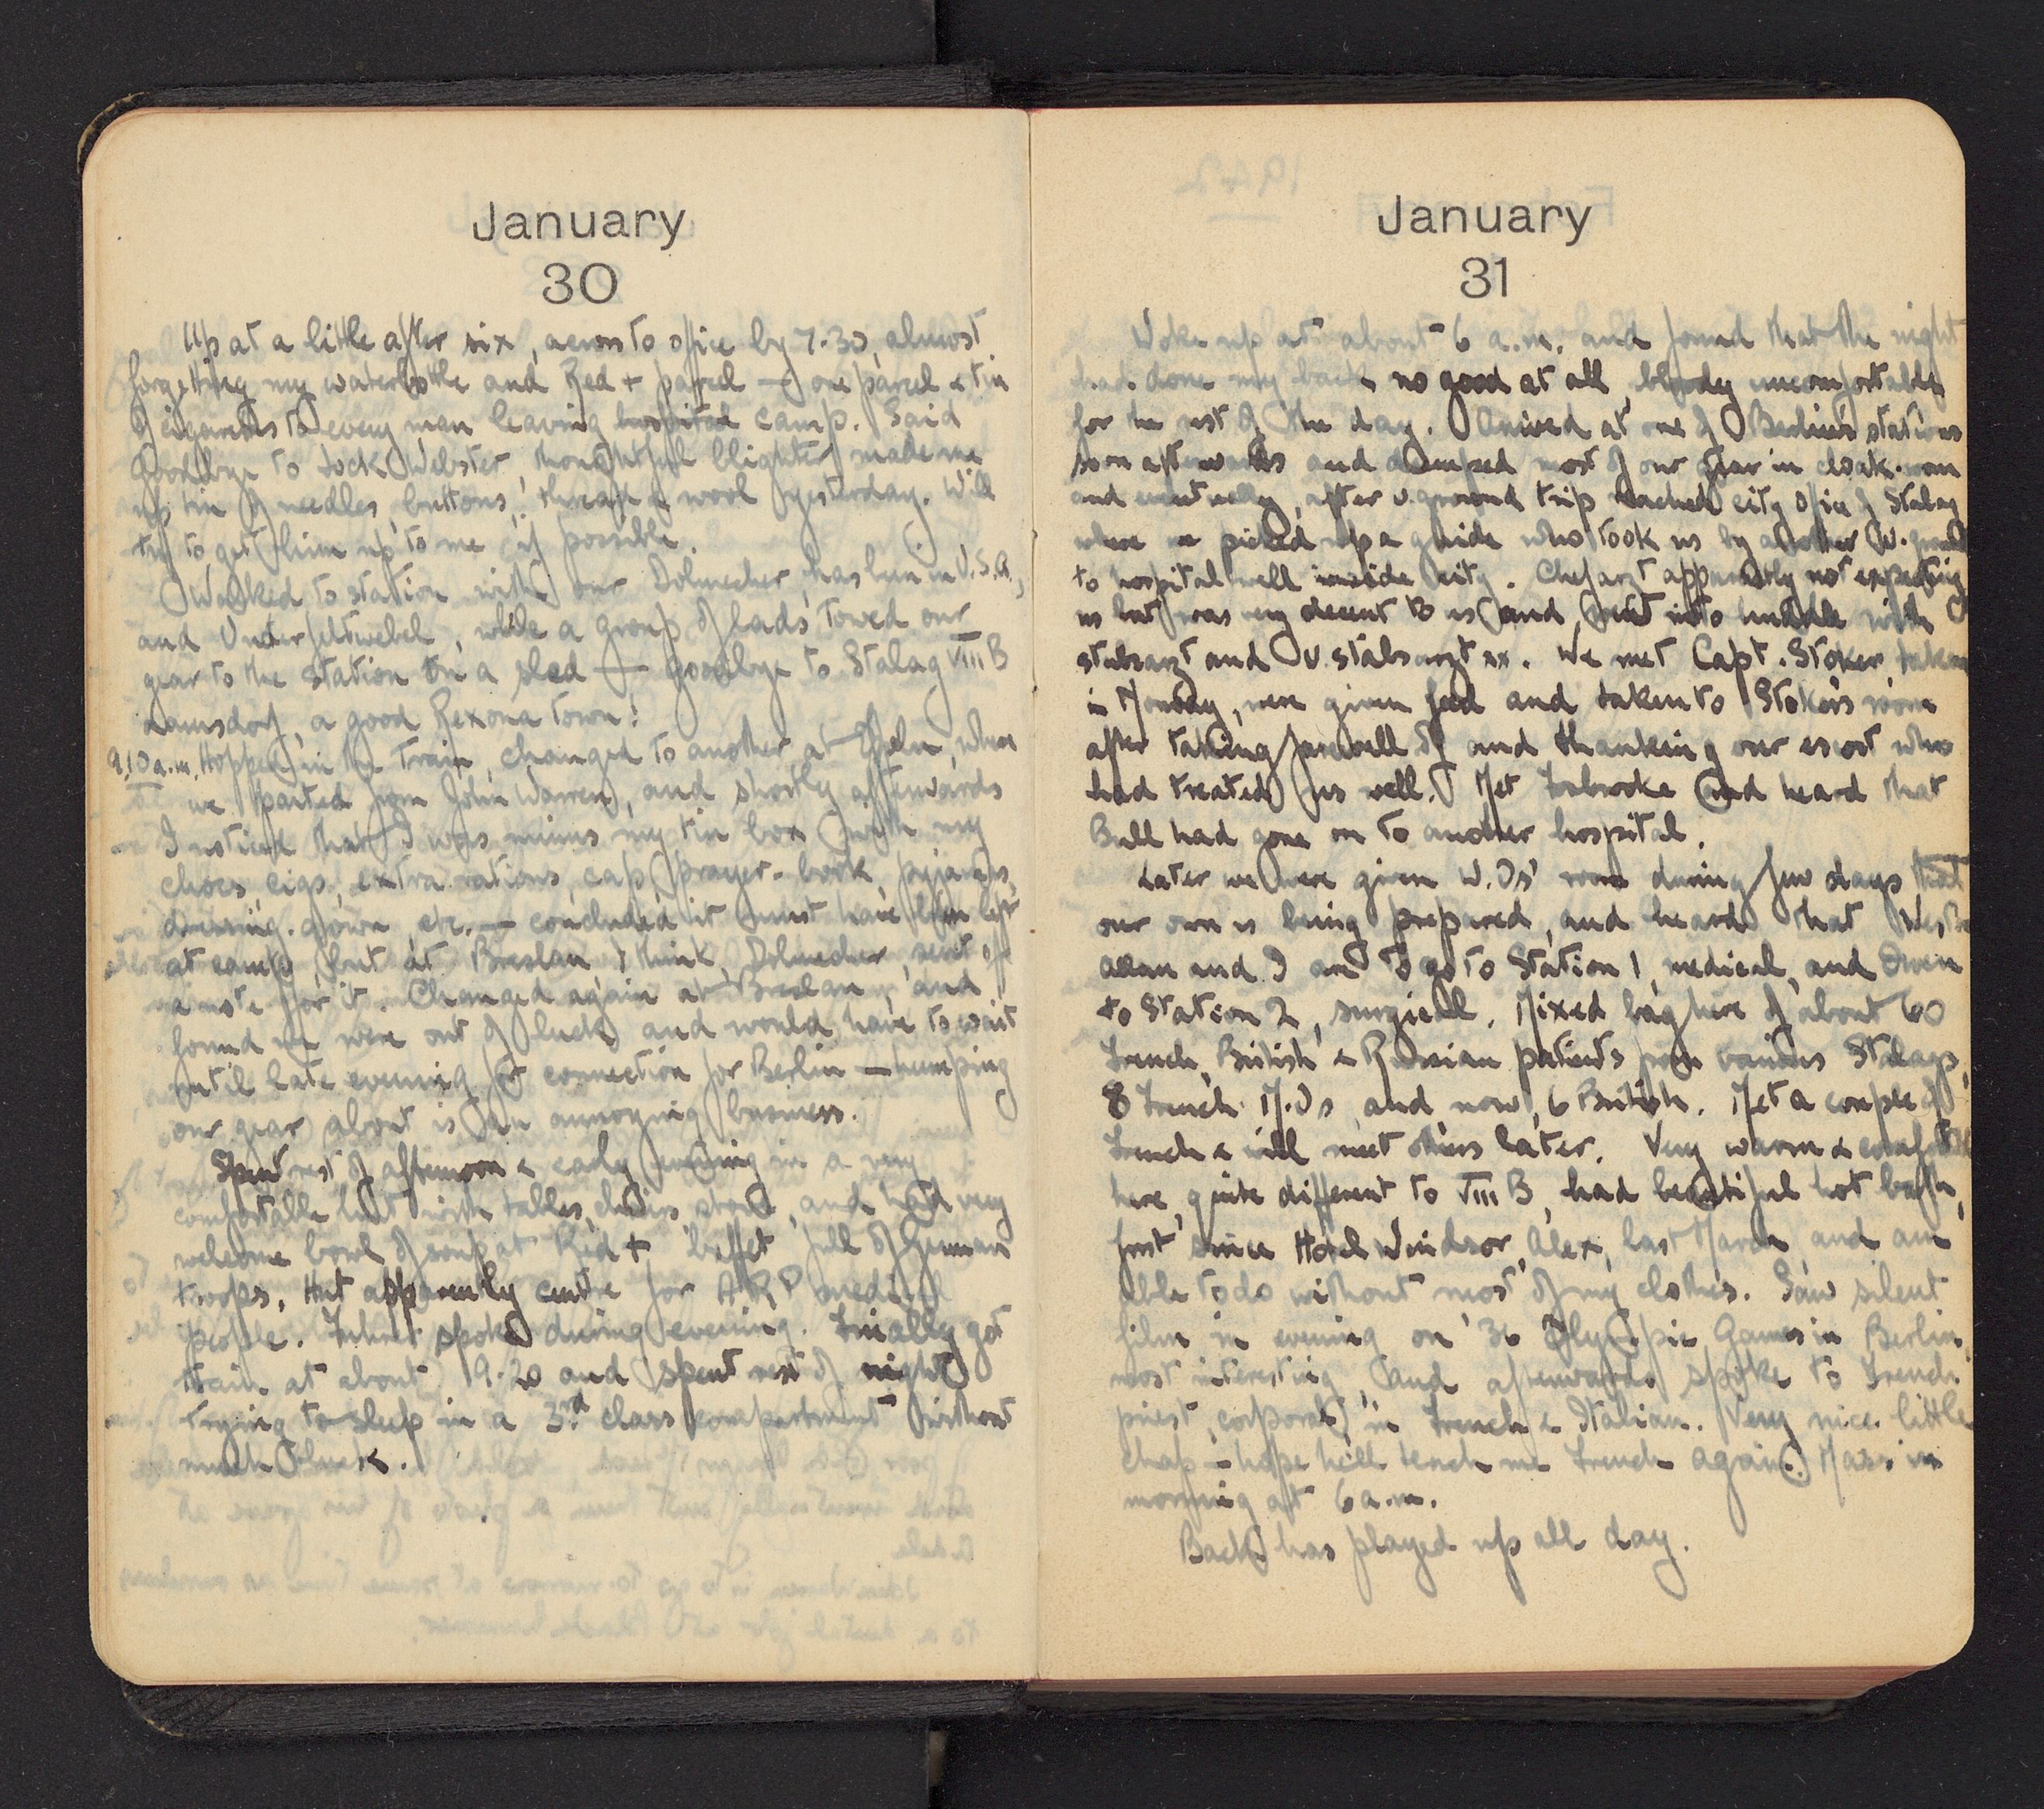 January
30
Up at a little after six, across to office by 7.30, almost
forgetting my waterbottle and Red + parcel — one parcel & tin
of cigarettes to every man leaving hospital camp. Said
Goodbye to Jock Webster, thoughtful blighter, made me
up tin of needles, buttons, thread & wool yesterday. Will
try to get him up to me if possible.
Walked to station with our Dolmecher, has been in U.S.A.,
and Underfeldwebel, while a group of lads towed our
gear to the station on a sled — goodbye to Stalag VIII B
Lamsdorf, a good Rexona Town!
9.10 a.m. Hopped in the train, changed to another at where
we parted from John Warren, and shortly afterwards
I noticed that I was minus my tin box with my
chocs, cigs, extra rations, cap, prayer-book, pyjamas,
dressing-gown etc. — concluded it must have been left
at camp, but at Breslau I think, Dolmecher sent off
a note for it. Changed again at Breslau, and
found we were out of luck and would have to wait
until late evening for connection for Berlin — humping
our gear about is an annoying business.
Spent rest of afternoon & early evening in a very
comfortable hut with tables, chairs, stove, and had very
welcome bowl of soup at Red + buffet full of German
troops. Hut apparently centre for A.R.P. medical
people. spoke during evening. Finally got
train at about 9.20 and spent rest of night
trying to sleep in a 3rd class compartment without
much luck.
1942
January
31
Woke up at about 6 a.m. and found that the night
had done my back no good at all, bloody uncomfortable
for the rest of the day. Arrived at one of Berlin's stations
soon afterwards and dumped most of our gear in cloak-room
and eventually, after u.ground trip reached city office of Stalag
where we picked up a guide who took us by another U.ground
to hospital well inside city. Chefarzt apparently not expecting
us but was very decent to us and went into huddle with
stabsarzt and U.stabsarzt . We met Capt. Stoker, taken
in Norway, were given feed and taken to Stoker's room
after taking farewell of and thanking our escort who
had treated us well. Met and heard that
Bull had gone on to another hospital.
Later we were given W.Os' room during few days that
our own is being prepared, and heard that
Allan and I are to go to Station 1, medical, and Owen
to Station 2, surgical. Mixed bag here of about 60
French, British & Russian patients from various Stalags,
8 French M.Os and now 6 British. Met a couple of
French & will meet others later. Very warm & comfortable
here, quite different to VIII B, had beautiful hot bath,
first since Hotel Windsor, Alex, last March, and am
able to do without most of my clothes. Saw silent
film in evening on '36 Olympic Games in Berlin
most interesting, and afterwards spoke to French
priest, corporal, in French & Italian. Very nice little
chap — hope he'll teach me French again. Mass in
morning at 6 a.m.
Back has played up all day.